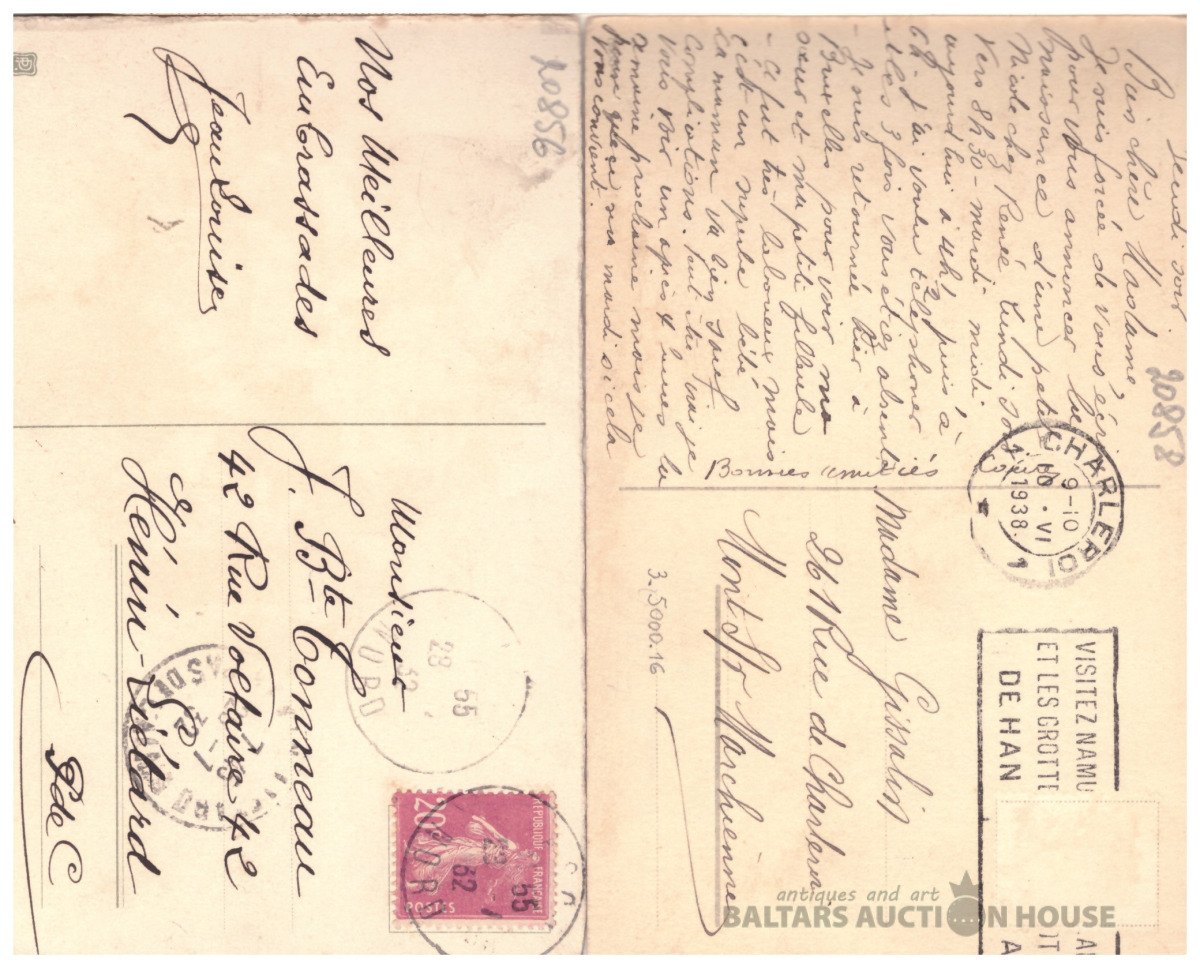 20856
Nos Meilleures
Embrassades
Jean Louise
Monsieur
J. Bte Conneau
42 Rue Voltaire 42
à
Hénin-Liétard
P de C
REPUBLIQUE FRANÇAISE
20c
POSTES
20858
Lundi soir
Bien chère Madame
Je suis forcée de vous écrire
pour vous annoncer la
naissance d'une petite
Nicole chez Renée lundi soir
vers 8h30 - mardi midi
aujourd'hui à 4h, puis à
6h j'ai voulu téléphoner
et les 3 fois vous étiez absente
- Je suis retournée hier à
Bruxelles pour voir ma
sœur et ma petite filleule
- Ce fort très laborieux, mais
c'est un superbe bébé
La maman va bien sauf
complications. Peut-être vrai je
vous voir un après 4 heures la
semaine prochaine mais je
mardi si cela
vous convient.
Bonnes amitiés
CHARLEROI
9-10
VI
1938
Madame Gissalis
26 Rue de Charleroi
Mont S/r Marchienne
3,5000.16
VISITEZ NAMU
ET LES GROTTE
DE HAN
antiques and art
BALTARS AUCTION HOUSE